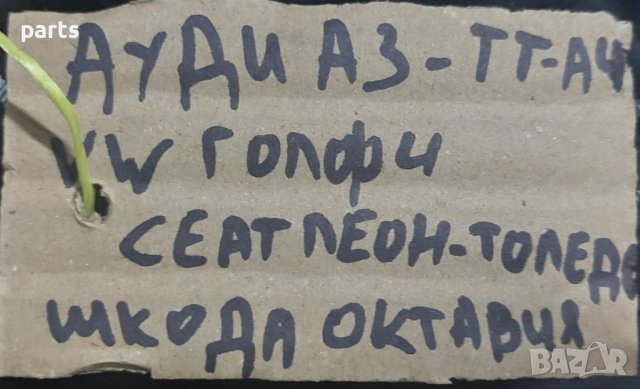 parts
АУДИ А3-ТТ-А4
VW ГОЛФ 4
СЕАТ ЛЕОН-ТОЛЕДО
ШКОДА ОКТАВИЯ
BAZAR